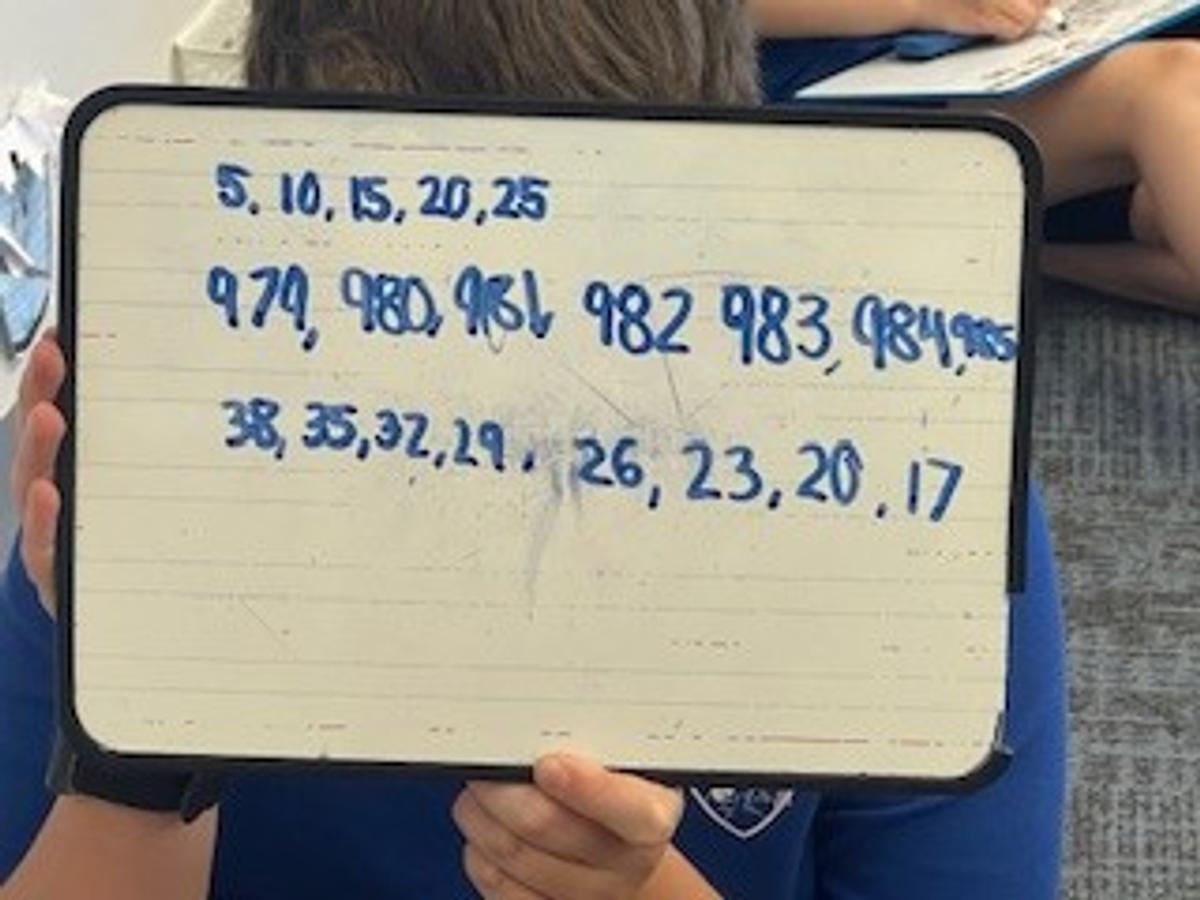 5, 10, 15, 20, 25
979, 980, 981, 982 983, 984, 985
38, 35, 32, 29, 26, 23, 20, 17